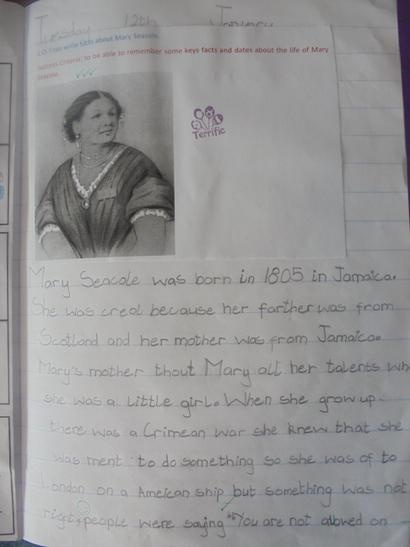 Tuesday 12th January
L.O: I can write facts about Mary Seacole.
Success Criteria: to be able to remember some keys facts and dates about the life of Mary
Seacole.
Terrific
Mary Seacole was born in 1805 in Jamaica.
She was creol because her farther was from
Scotland and her mother was from Jamaica.
Mary's mother thout Mary all her talents wh
she was a little girl. When she grow up
there was a Crimean war she knew that she
was ment to do something so she was of to
London on a Ameican ship but something was not
right, people were saying "You are not allowed on